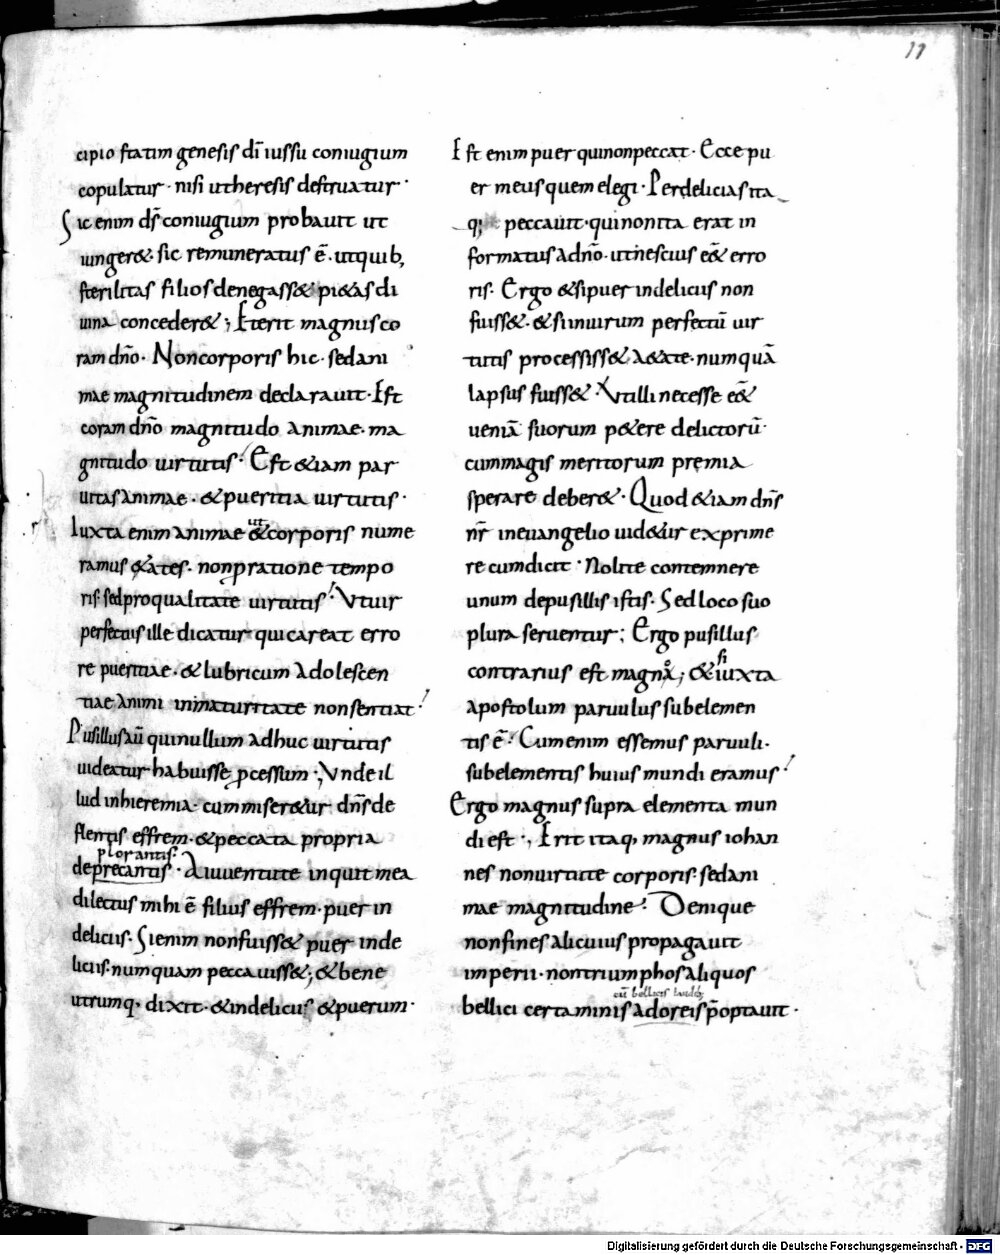 11
cipio statim genesis dī iussu coniugium
copulatur · nisi ut heresis destruatur ·
Sic enim ds̄ coniugium probauit ut
iunger& · sic remuneratus ē · ut quib;
sterilitas filios denegass& pi&as di
uina conceder&; Et erit magnus co
ram dn̄o · Non corporis hic · sed ani
mae magnitudinem declarauit · Est
coram dn̄o magnitudo animae · ma
gnitudo uirtutis · Est &iam par
uitas animae · & pueritia uirtutis ·
ut
Iuxta enim animae & corporis nume
ramus &ates · non pratione tempo
ris · sed pro qualitate uirtutis · Ut uir
perfectus ille dicatur qui careat erro
re pueritiae · & lubricum adolescen
tiae animi inmaturitate non sentiat ·
Pusillus aū qui nullum adhuc uirtutis
uideatur habuisse pcessum ·, Unde il
lud in hieremia · cum miser&ur dn̄s de
flentis effrem · & peccata propria
plorantis ·
deprecantis · A iuuentute inquit mea
dilectus mihi ē filius effrem · puer in
deliciis · Si enim non fuiss& puer in de
liciis · numquam peccauiss&; & bene
utrumq, dixit · & in delicus & puerum ·
Est enim puer qui non peccat · Ecce pu
er meus quem elegi · Per delicias ita
q; peccauit · qui non ita erat in
formatus ad dn̄o · ut nescius e&̄ erro
ris · Ergo & si puer in delicus non
fuiss& · & si in uirum perfectū uir
tutis processiss& a &ate · numquā
lapsus fuiss& · Ut illi necesse e&̄
ueniā suorum p&ere delictorū ·
cum magis meritorum premia
sperare deber& · Quod &iam dn̄s
nr̄ in euangelio uid&ur exprime
re cum dicit · Nolite contemnere
unum de pusillis istis · Sed loco suo
plura seruentur; Ergo pusillus
si
contrarius est magno; & iuxta
apostolum paruulus sub elemen
tis ē · Cum enim essemus paruuli ·
sub elementis huius mundi eramus ·
Ergo magnus supra elementa mun
di est ·, Erit itaq, magnus iohan
nes non uirtute corporis · sed ani
mae magnitudine · Denique
non fines alicuius propagauit
imperii · non triumphos aliquos
bellici certaminis adoreis p̄optauit ·
Digitalisierung gefördert durch die Deutsche Forschungsgemeinschaft - DFG